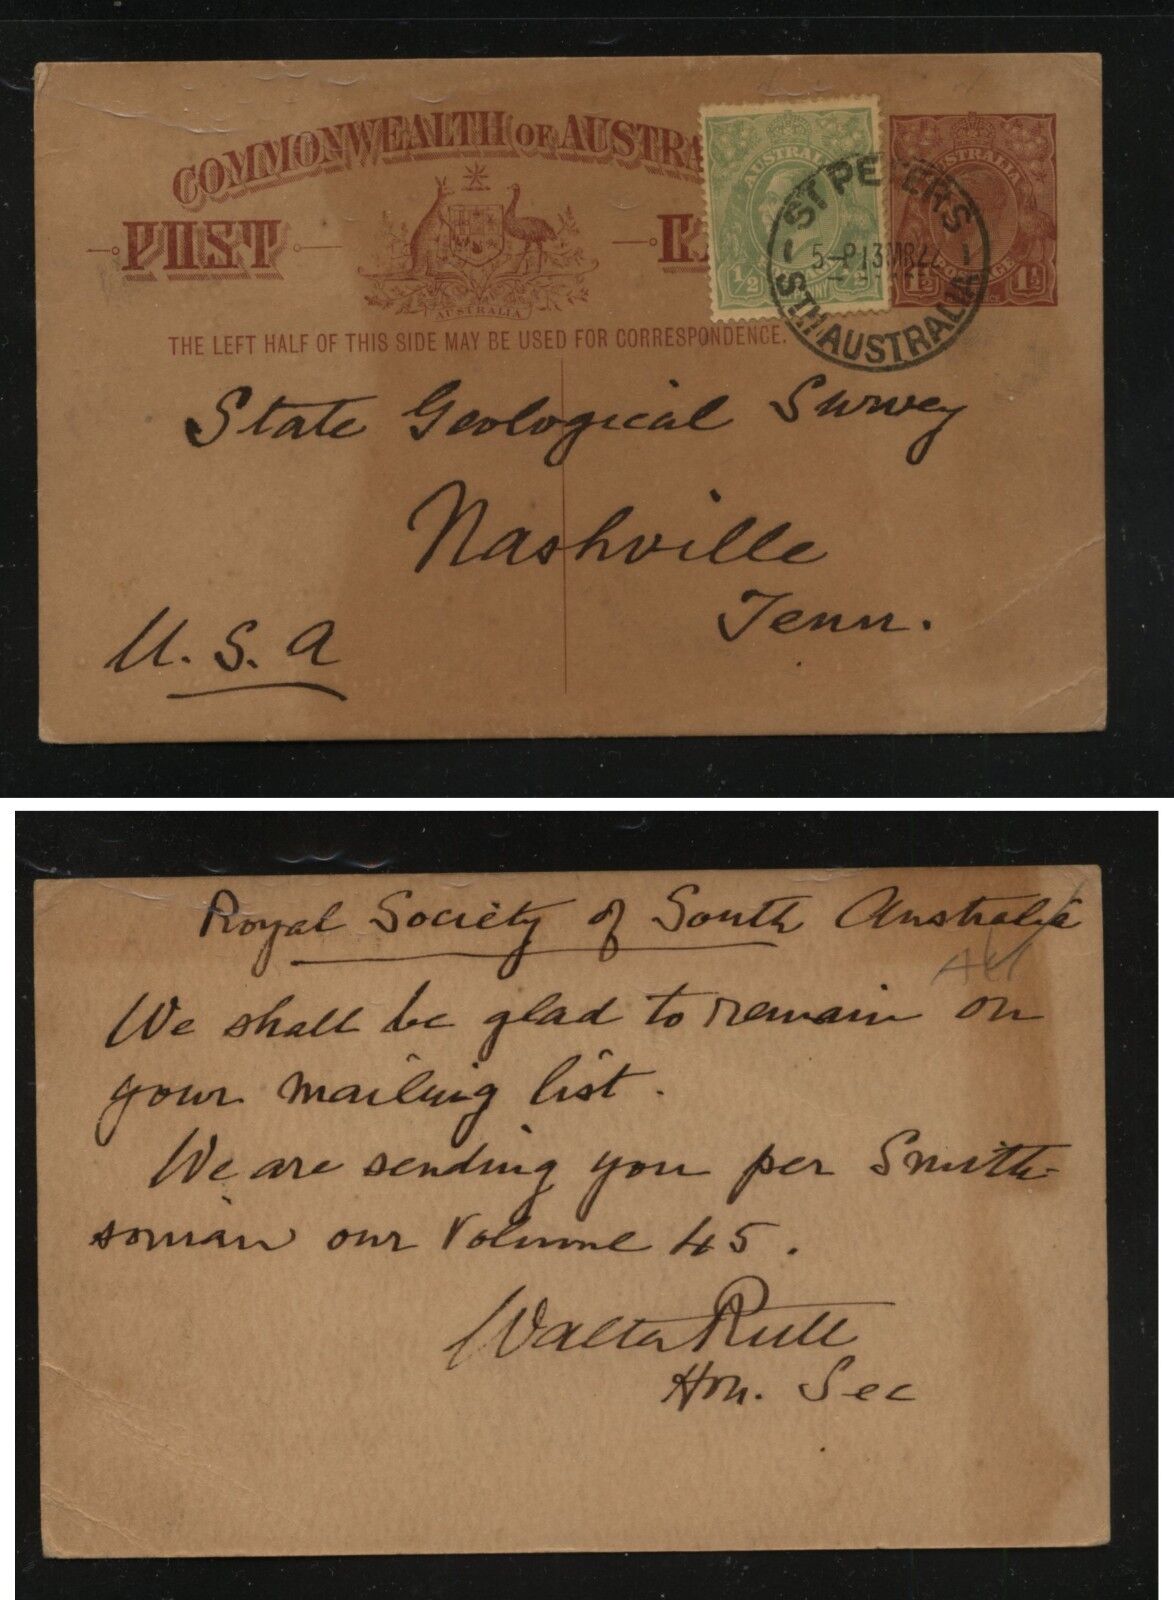 COMMONWEALTH OF AUSTRA
POST
AUSTRALIA
THE LEFT HALF OF THIS SIDE MAY BE USED FOR CORRESPONDENCE.
AUSTRALIA
½ ½
PENNY
AUSTRALIA
POSTAGE
1½ 1½
ST PETERS
STH AUSTRALIA
State Geological Survey
Nashville
Tenn.
U.S.A
Royal Society of South Australia
We shall be glad to remain on
your mailing list.
We are sending you per Smith-
sonian our Volume 45.
Walter Rutt
Hon. Sec